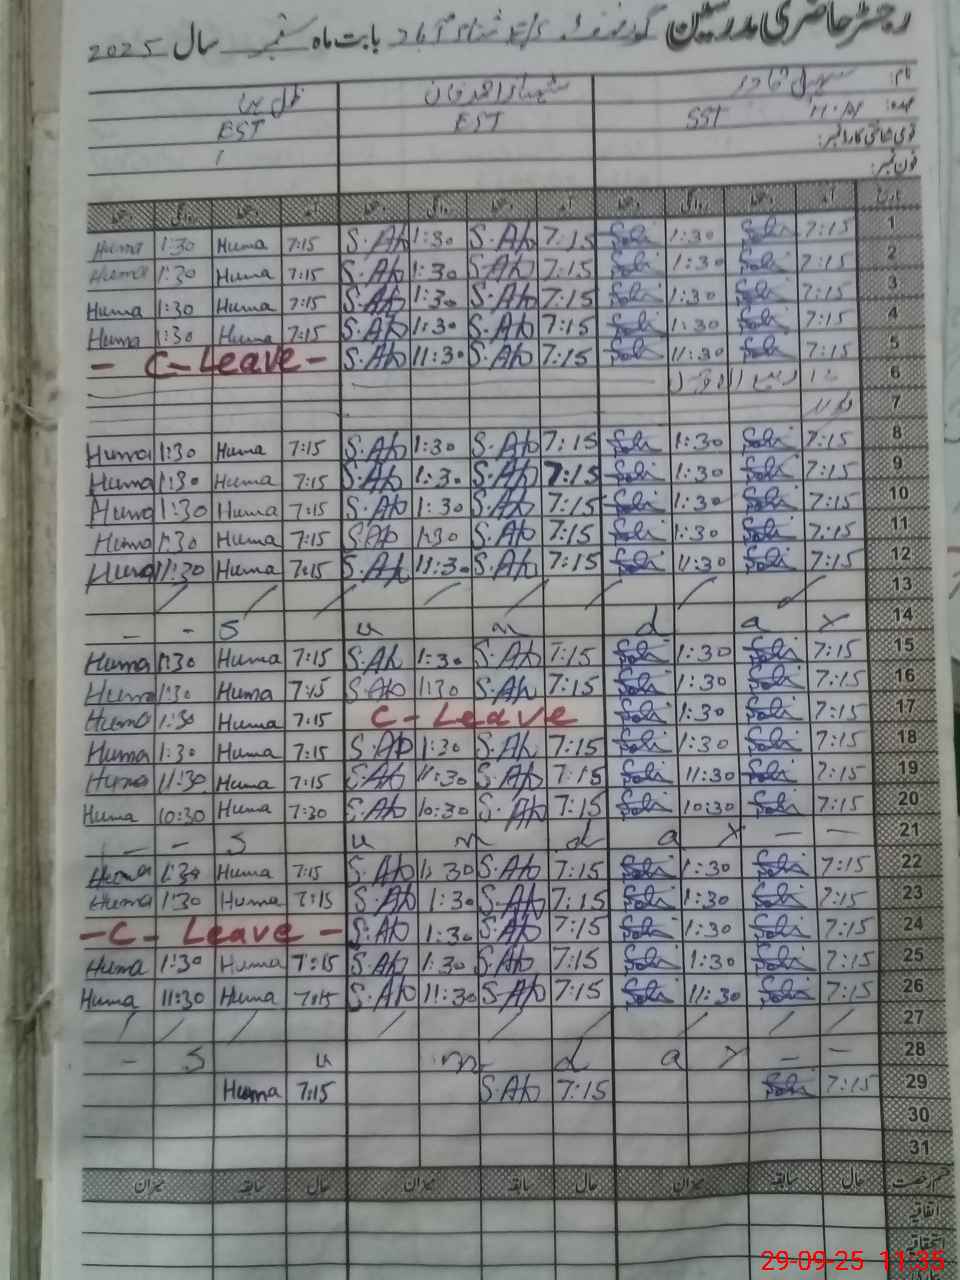 رجسٹر حاضری مدرسین بابت ماہ ستمبر سال 2025
نام: شہباز احمد خان
عہدہ: SST EST EST
قومی شناختی کارڈ نمبر:
فون نمبر:
تاریخ آمد دستخط روانگی دستخط آمد دستخط روانگی دستخط آمد دستخط روانگی دستخط
Huma 1:30 Huma 7:15 S.Ah 1:30 S.Ah 7:15 1:30 7:15 1
Huma 1:30 Huma 7:15 S.Ah 1:30 S.Ah 7:15 1:30 7:15 2
Huma 1:30 Huma 7:15 S.Ah 1:30 S.Ah 7:15 1:30 7:15 3
Huma 1:30 Huma 7:15 S.Ah 1:30 S.Ah 7:15 1:30 7:15 4
- C-Leave - S.Ah 11:30 S.Ah 7:15 11:30 7:15 5
6
7
Huma 1:30 Huma 7:15 S.Ah 1:30 S.Ah 7:15 1:30 7:15 8
Huma 1:30 Huma 7:15 S.Ah 1:30 S.Ah 7:15 1:30 7:15 9
Huma 1:30 Huma 7:15 S.Ah 1:30 S.Ah 7:15 1:30 7:15 10
Huma 1:30 Huma 7:15 S.Ah 1:30 S.Ah 7:15 1:30 7:15 11
Huma 11:30 Huma 7:15 S.Ah 11:30 S.Ah 7:15 11:30 7:15 12
13
- - S u n d a y 14
Huma 1:30 Huma 7:15 S.Ah 1:30 S.Ah 7:15 1:30 7:15 15
Huma 1:30 Huma 7:15 S.Ah 1:30 S.Ah 7:15 1:30 7:15 16
Huma 1:30 Huma 7:15 C-Leave 1:30 7:15 17
Huma 1:30 Huma 7:15 S.Ah 1:30 S.Ah 7:15 1:30 7:15 18
Huma 11:30 Huma 7:15 S.Ah 11:30 S.Ah 7:15 11:30 7:15 19
Huma 10:30 Huma 7:30 S.Ah 10:30 S.Ah 7:15 10:30 7:15 20
- - S u n d a y - - 21
Huma 1:30 Huma 7:15 S.Ah 1:30 S.Ah 7:15 1:30 7:15 22
Huma 1:30 Huma 7:15 S.Ah 1:30 S.Ah 7:15 1:30 7:15 23
- C- Leave - S.Ah 1:30 S.Ah 7:15 1:30 7:15 24
Huma 1:30 Huma 7:15 S.Ah 1:30 S.Ah 7:15 1:30 7:15 25
Huma 11:30 Huma 7:15 S.Ah 11:30 S.Ah 7:15 11:30 7:15 26
27
- S u n d a y - - 28
Huma 7:15 S.Ah 7:15 7:15 29
30
31
قسم رخصت حال سابقہ میزان حال سابقہ میزان حال سابقہ میزان
اتفاقیہ
استحقاقیہ
29-09-25 11:35